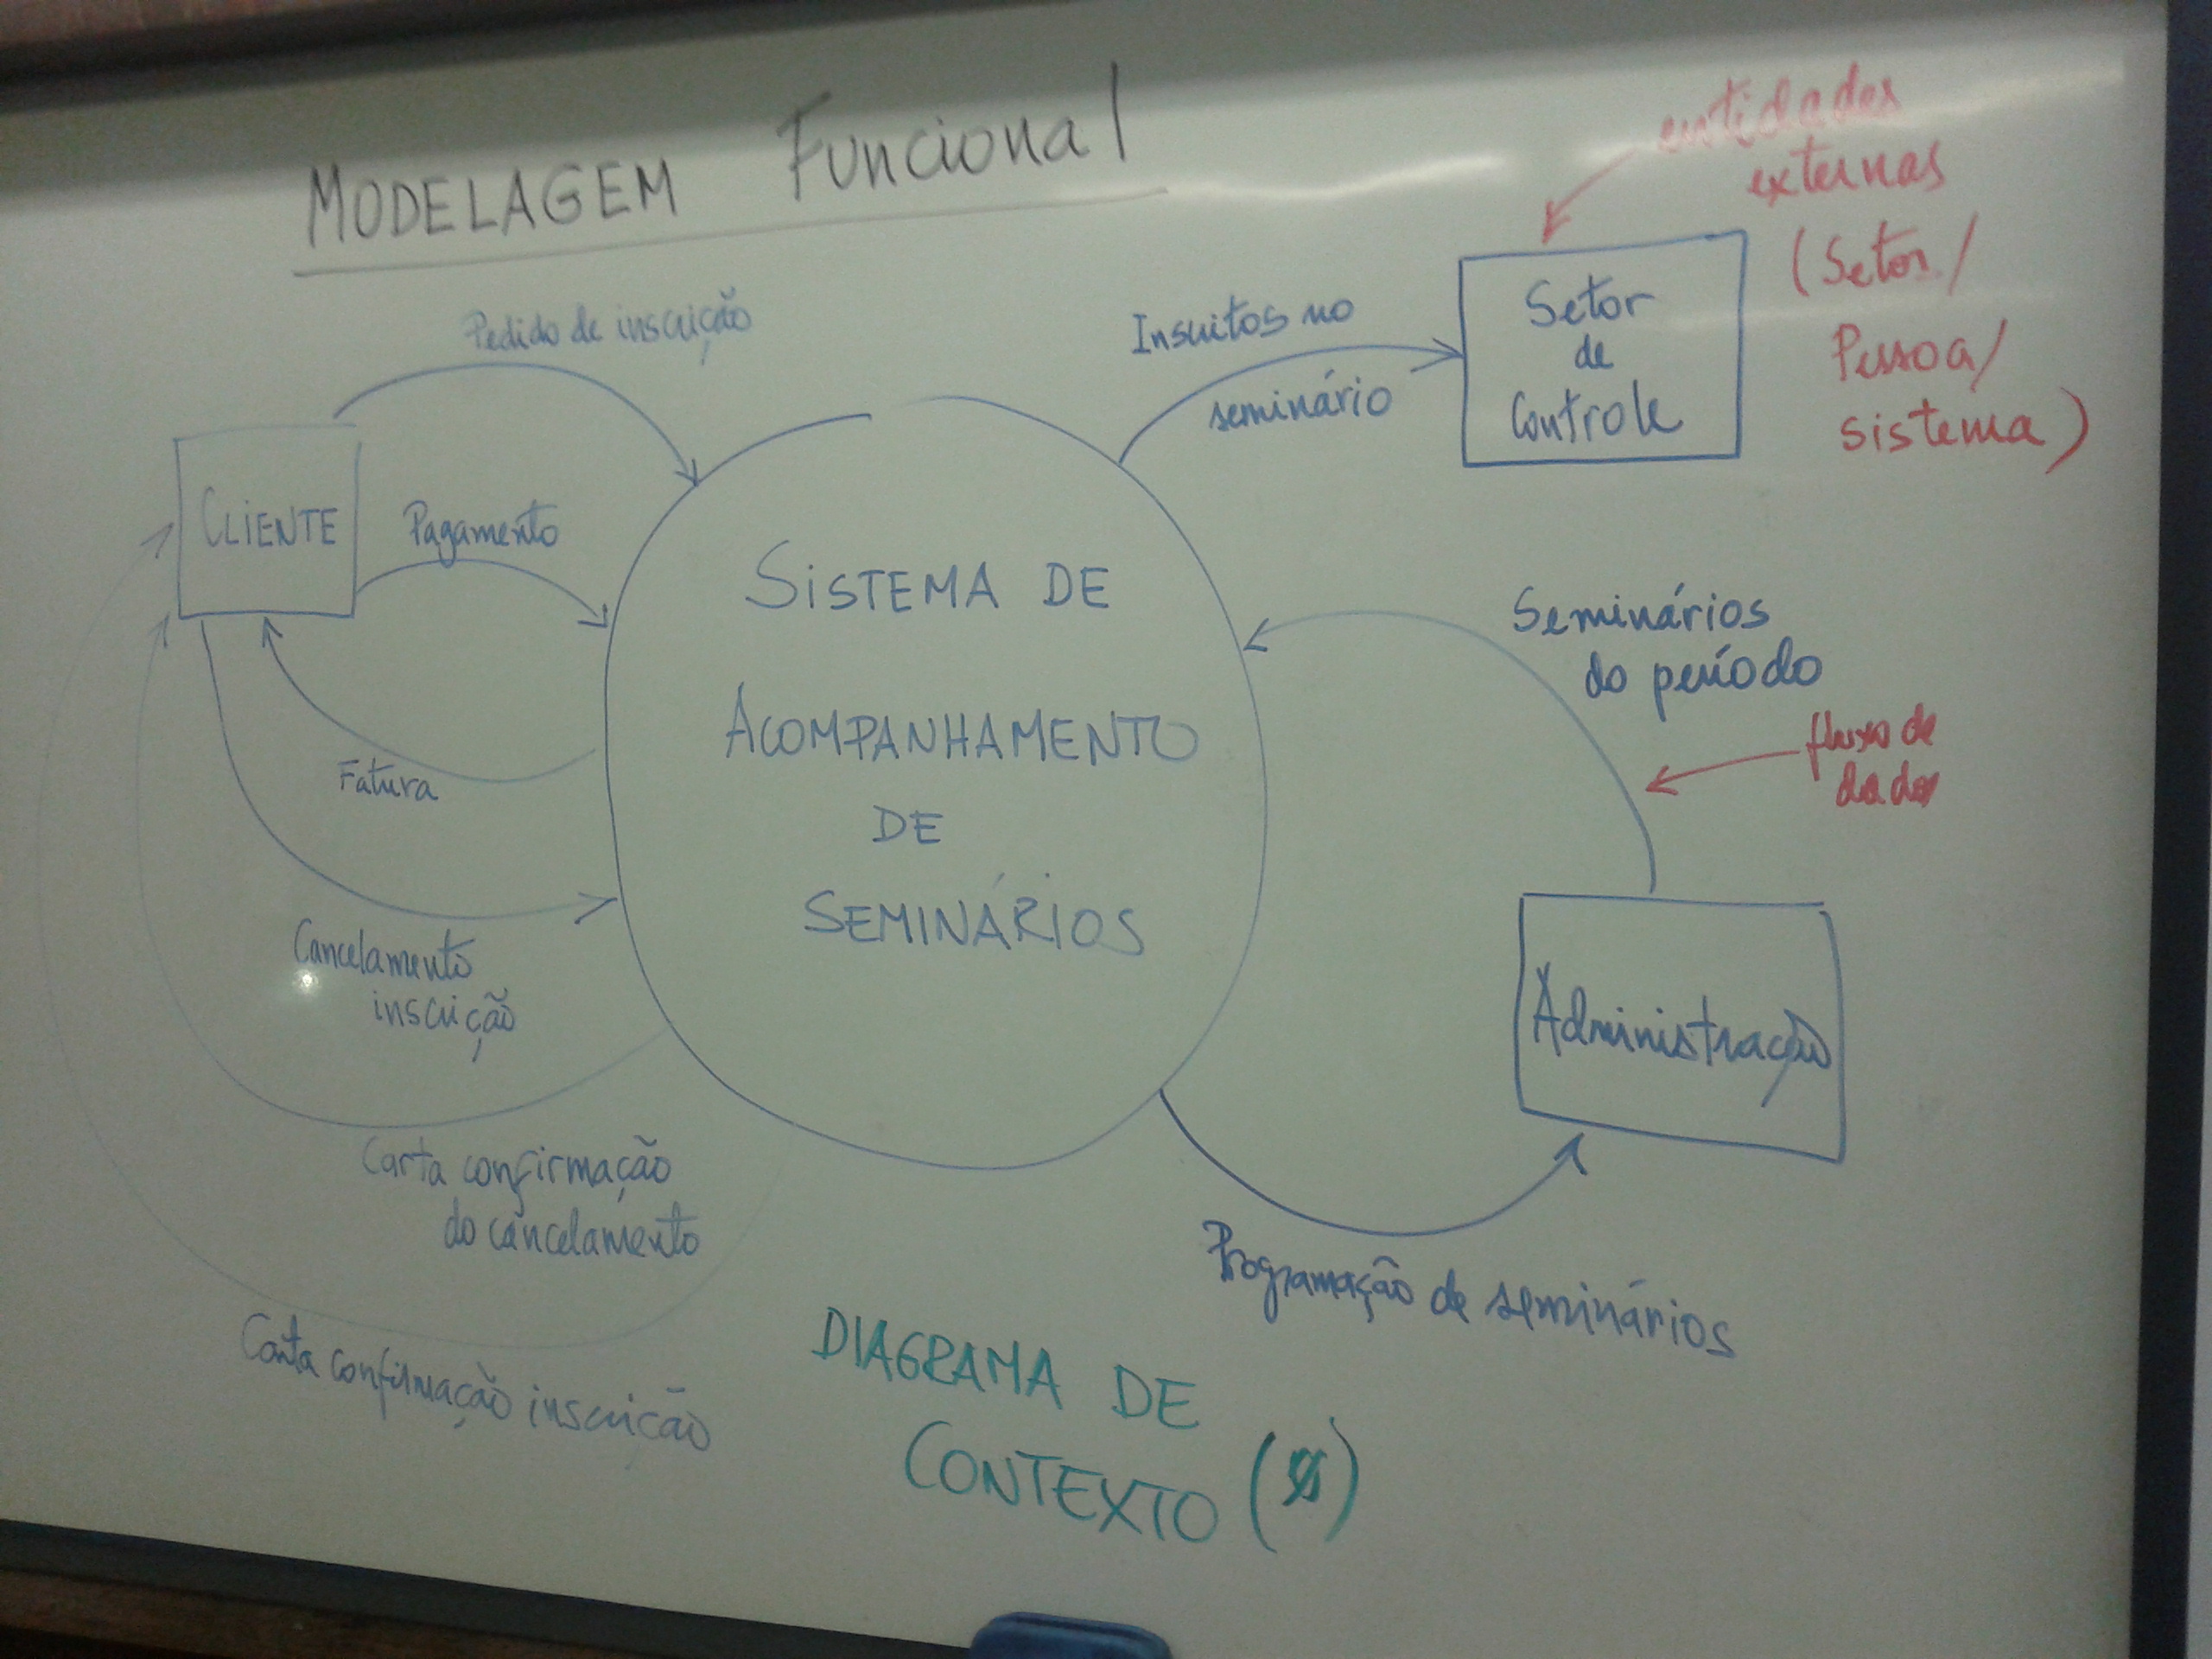 MODELAGEM Funcional
entidades
externas
(Setor/
Pessoa/
sistema)
Pedido de inscrição
Inscritos no
seminário
Setor
de
Controle
CLIENTE
Pagamento
SISTEMA DE
ACOMPANHAMENTO
DE
SEMINÁRIOS
Seminários
do período
fluxo de
dados
Fatura
Cancelamento
inscrição
Administração
Carta confirmação
do cancelamento
Carta confirmação inscrição
Programação de seminários
DIAGRAMA DE
CONTEXTO